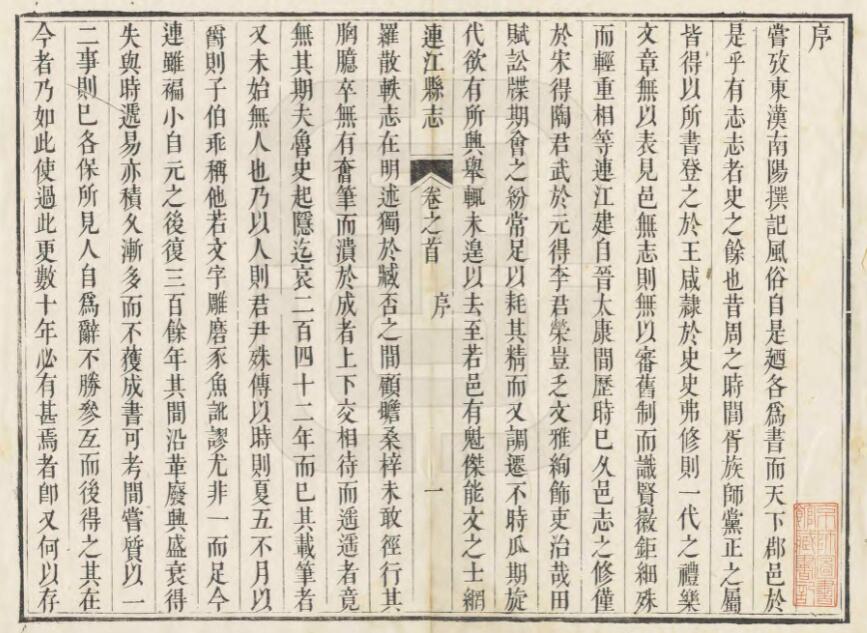 序
嘗攷東漢南陽撰記風俗自是廼各爲書而天下郡邑於
是乎有志志者史之餘也昔周之時閭胥族師黨正之屬
皆得以所書登之於王咸隸於史史弗修則一代之禮樂
文章無以表見邑無志則無以審舊制而識賢嶶鉅細殊
而輕重相等連江建自晉太康間歷時已久邑志之修僅
於宋得陶君武於元得李君榮豈乏文雅絢飾吏治哉田
賦訟牒期會之紛常足以耗其精而又調遷不時瓜期旋
代欲有所興舉輒未遑以去至若邑有魁傑能文之士網
連江縣志
卷之首
序
一
羅散軼志在明述獨於臧否之間顧瞻桑梓未敢徑行其
胸臆卒無有奮筆而潰於成者上下交相待而遥遥者竟
無其期夫魯史起隱迄哀二百四十二年而已其載筆者
又未始無人也乃以人則君尹殊傳以時則夏五不月以
爵則子伯乖稱他若文字雕磨豕魚訛謬尤非一而足今
連雖褊小自元之後復三百餘年其間沿革廢興盛衰得
失與時遞易亦積久漸多而不獲成書可考間嘗質以一
二事則已各保所見人自爲辭不勝參互而後得之其在
今者乃如此使過此更數十年必有甚焉者卽又何以存